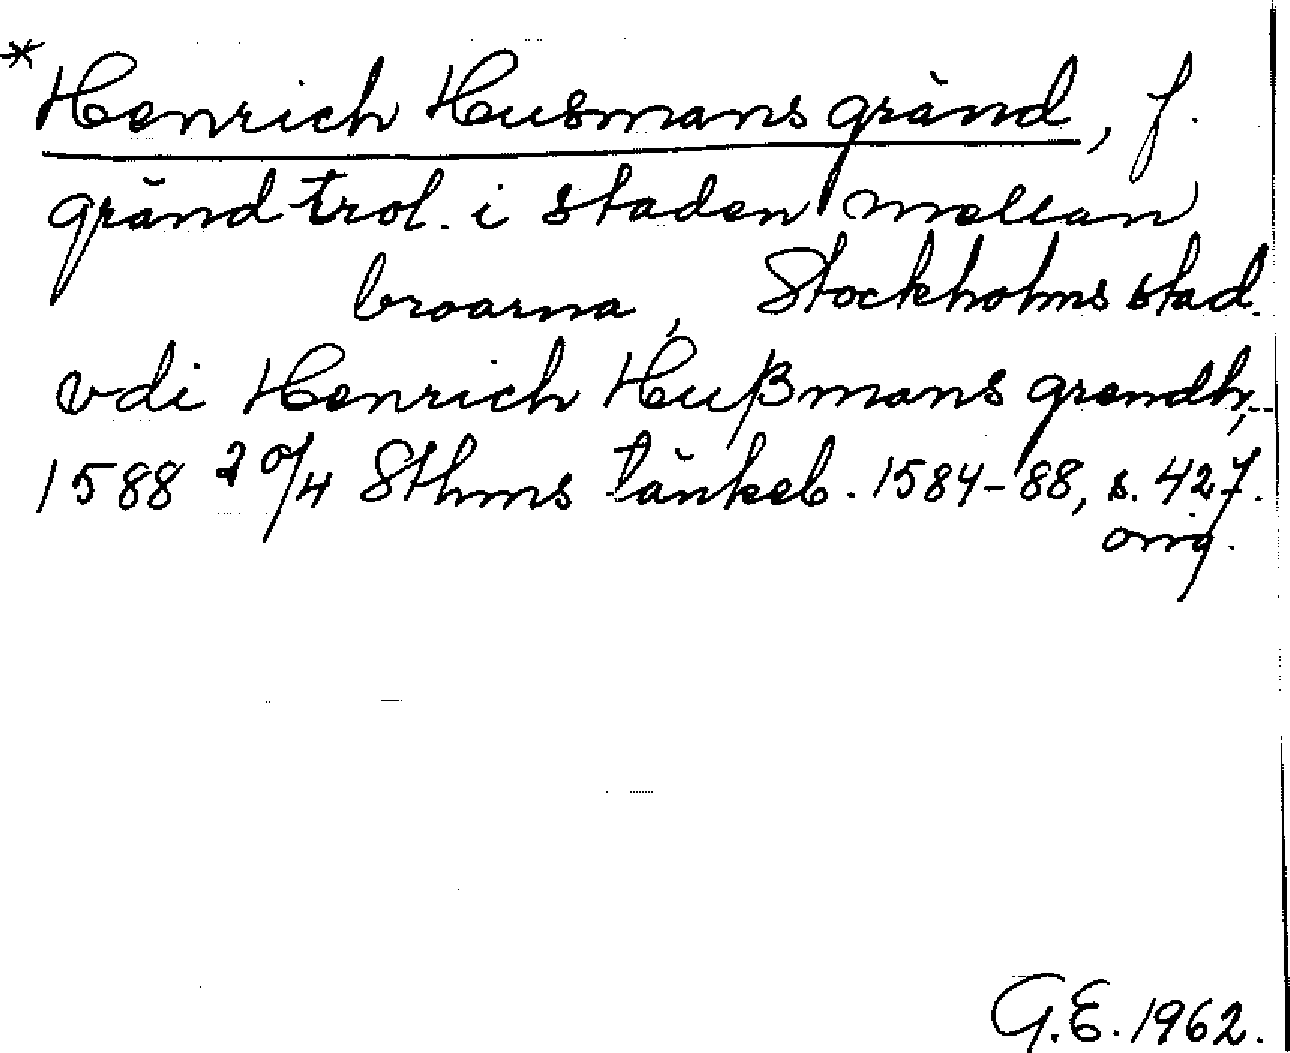 * Henrich Husmans gränd, f.
gränd trol. i staden mellan
broarna, Stockholms stad.
vdi Henrich Hußmans grendh,
1588 20/4 Sthms tänkeb. 1584-88, s. 427.
orig.
G.E. 1962.